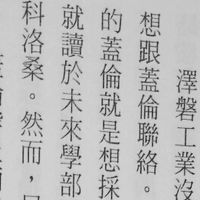 澤磐工業沒
想跟蓋倫聯絡。
的蓋倫就是想採
就讀於未來學部
科洛桑。然而，